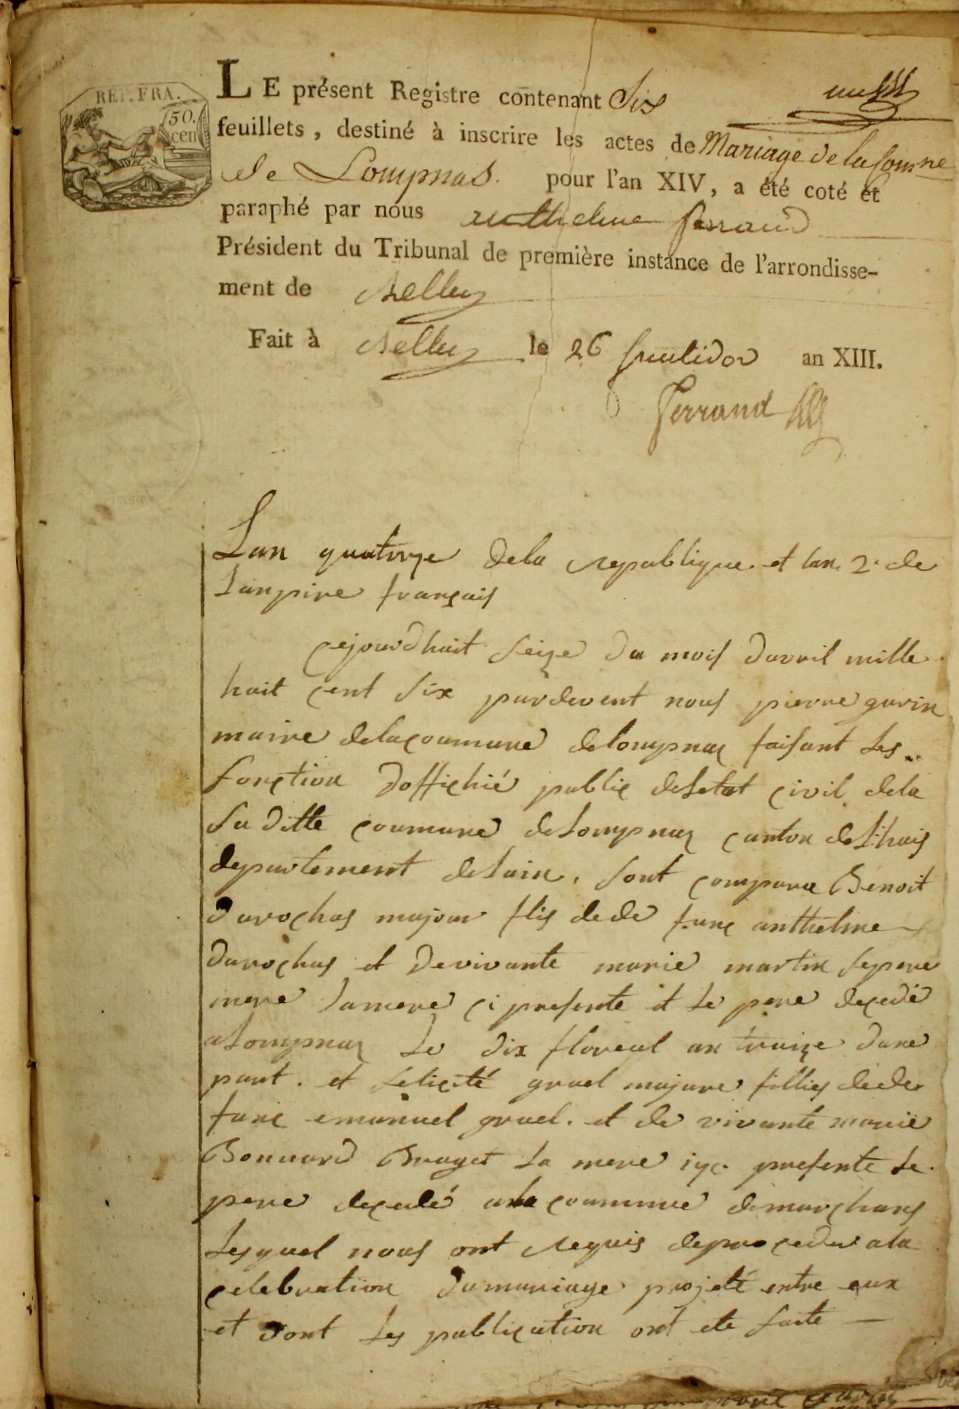 REP. FRA.
50.
cen
LE présent Registre contenant Six
feuillets, destiné à inscrire les actes de Mariage de la Comne
de Lompnas. pour l'an XIV, a été coté et
paraphé par nous anthelme ferrand
Président du Tribunal de première instance de l'arrondisse-
ment de Belley
Fait à Belley le 26 fructidor an XIII.
ferrand
Lan quatorze dela republique et lan 2e de
lanpire français
cejourdhuit seize du mois davril mille
huit cent six pardevent nous pierre gurin
maire delacoumune delompnaz faisant les
fonction doffichié public deletat civil dela
suditte coumune delompnaz canton delhuis
departement delain, sont comparu Benoit
darochas majour flis dede func anthelme
darochas et devivante marie martin sepere
mere lamere ci presente et le pere decedé
alompnaz le dix floreal an traize dune
part. et felicité gruel majure fillies dede
func emanuel gruel. et de vivante marie
Bonnard Buget la mere icy presente le
pere decedé ala coumune demarchans
lesquel nous ont requis deproceder ala
celebration dumariage projeté entre eux
et dont les publication ont ete faite